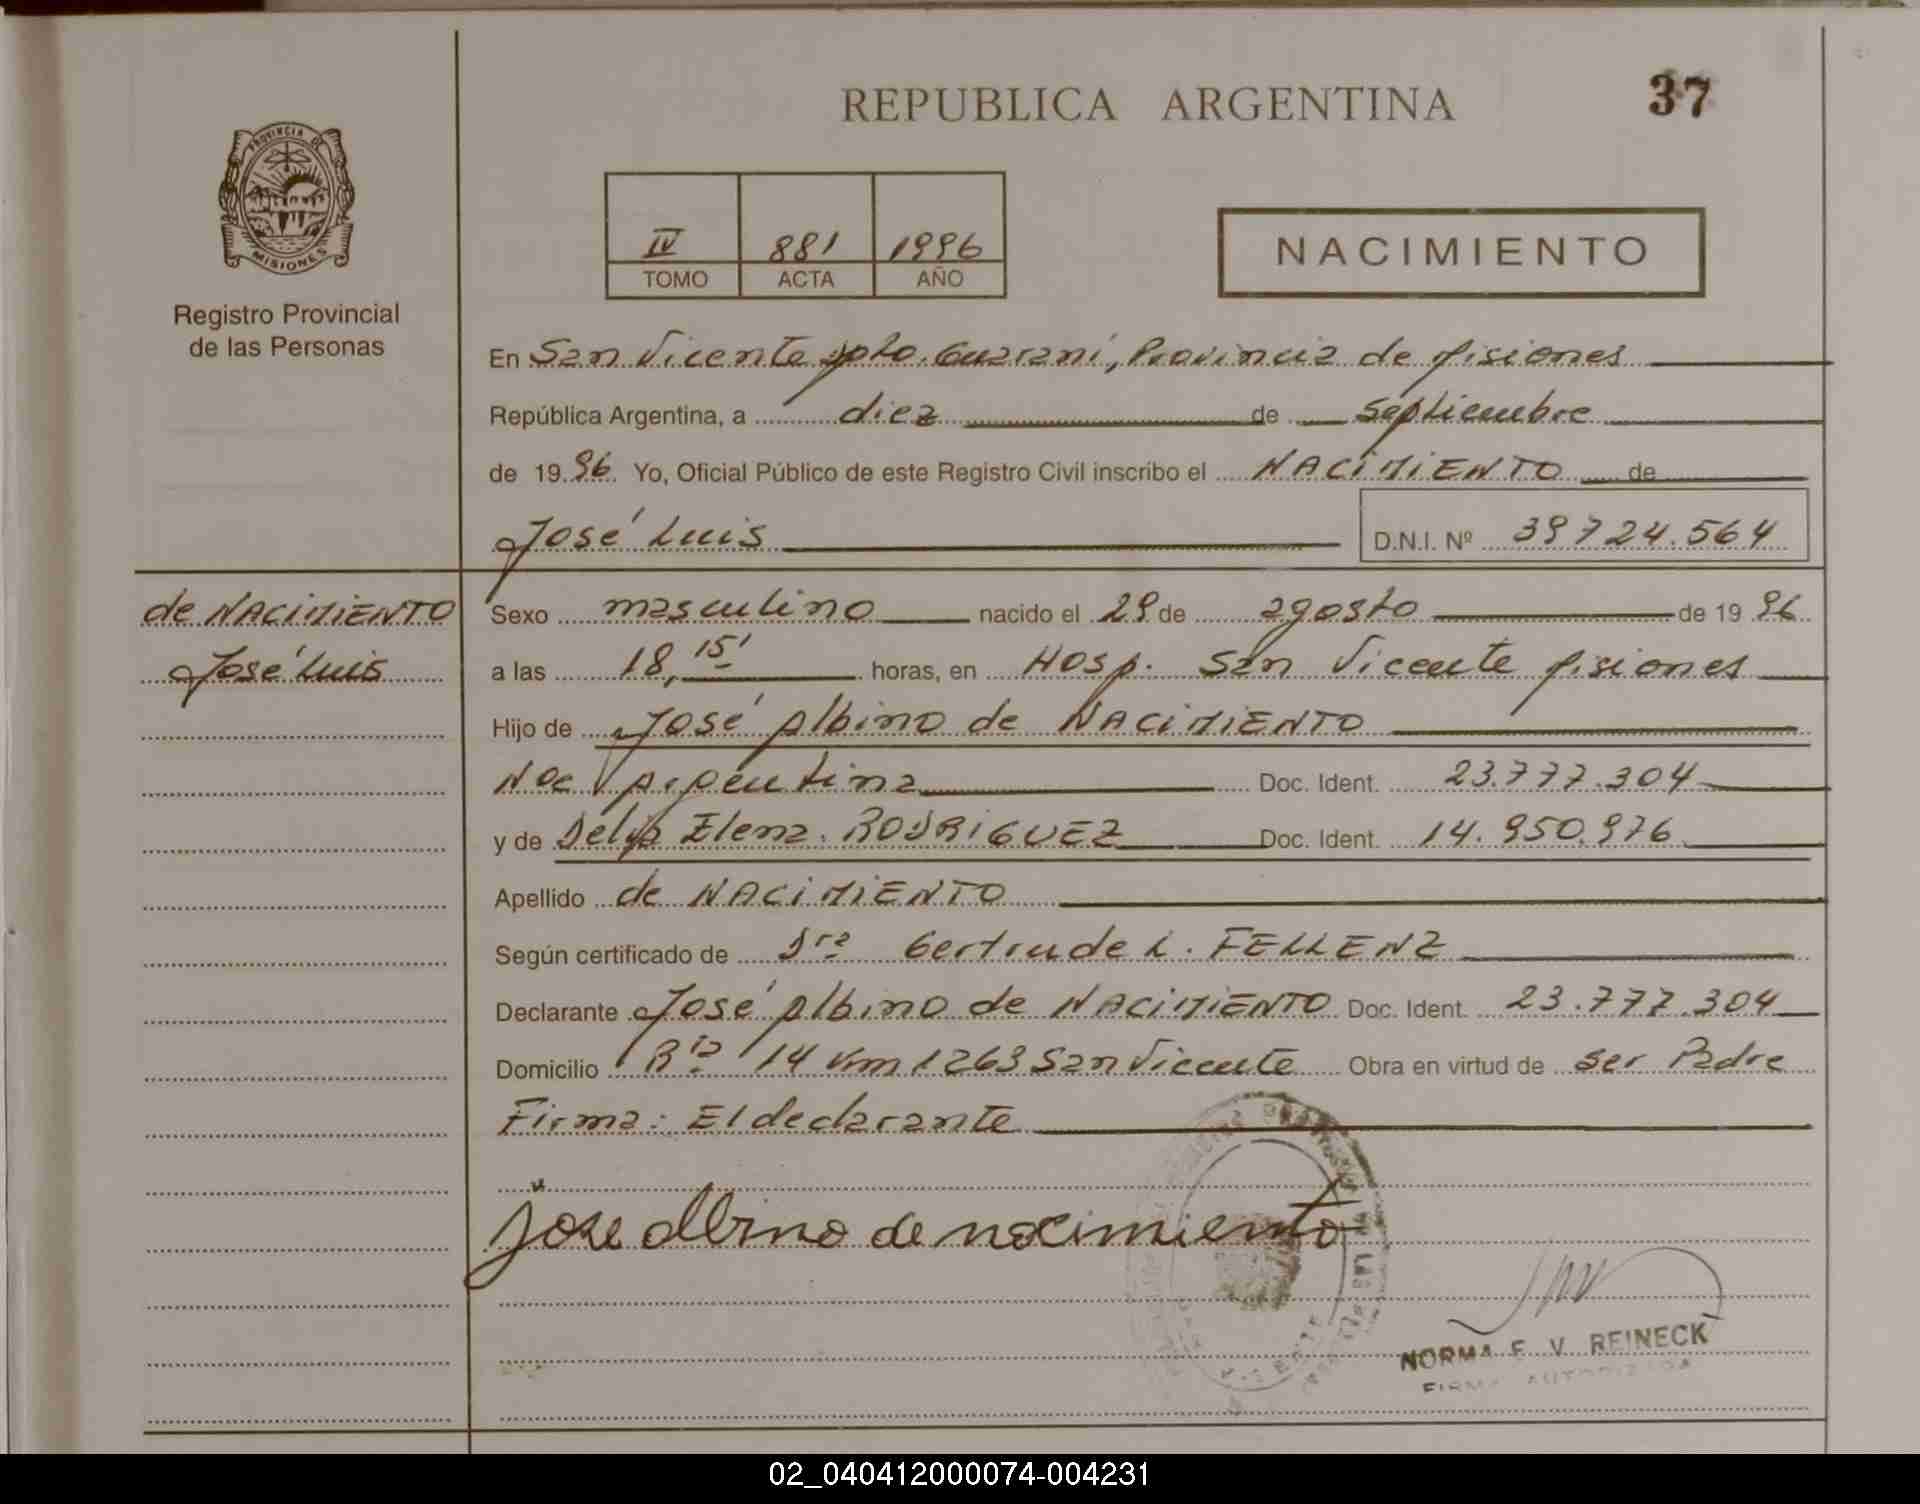 REPUBLICA ARGENTINA
37
PROVINCIA DE
MISIONES
Registro Provincial
de las Personas
IV 881 1996
TOMO ACTA AÑO
NACIMIENTO
En San Vicente Dpto. Guaraní, Provincia de Misiones
República Argentina, a diez de Septiembre
de 1996 Yo, Oficial Público de este Registro Civil inscribo el NACIMIENTO de
José Luis D.N.I. Nº 39724.564
de NACIMIENTO
José Luis
Sexo masculino nacido el 29 de agosto de 1996
a las 18,15' horas, en Hosp. San Vicente Misiones
Hijo de José Albino de NACIMIENTO
Nac Argentina Doc. Ident. 23.777.304
y de Delia Elena RODRIGUEZ Doc. Ident. 14.950.976
Apellido de NACIMIENTO
Según certificado de Dra Gertrude L. FELLENZ
Declarante José Albino de NACIMIENTO Doc. Ident. 23.777.304
Domicilio Rta 14 Km 1263 San Vicente Obra en virtud de ser Padre
Firma: El declarante
jose albino de nacimiento
NORMA E. V. REINECK
FIRMA AUTORIZADA
02_040412000074-004231